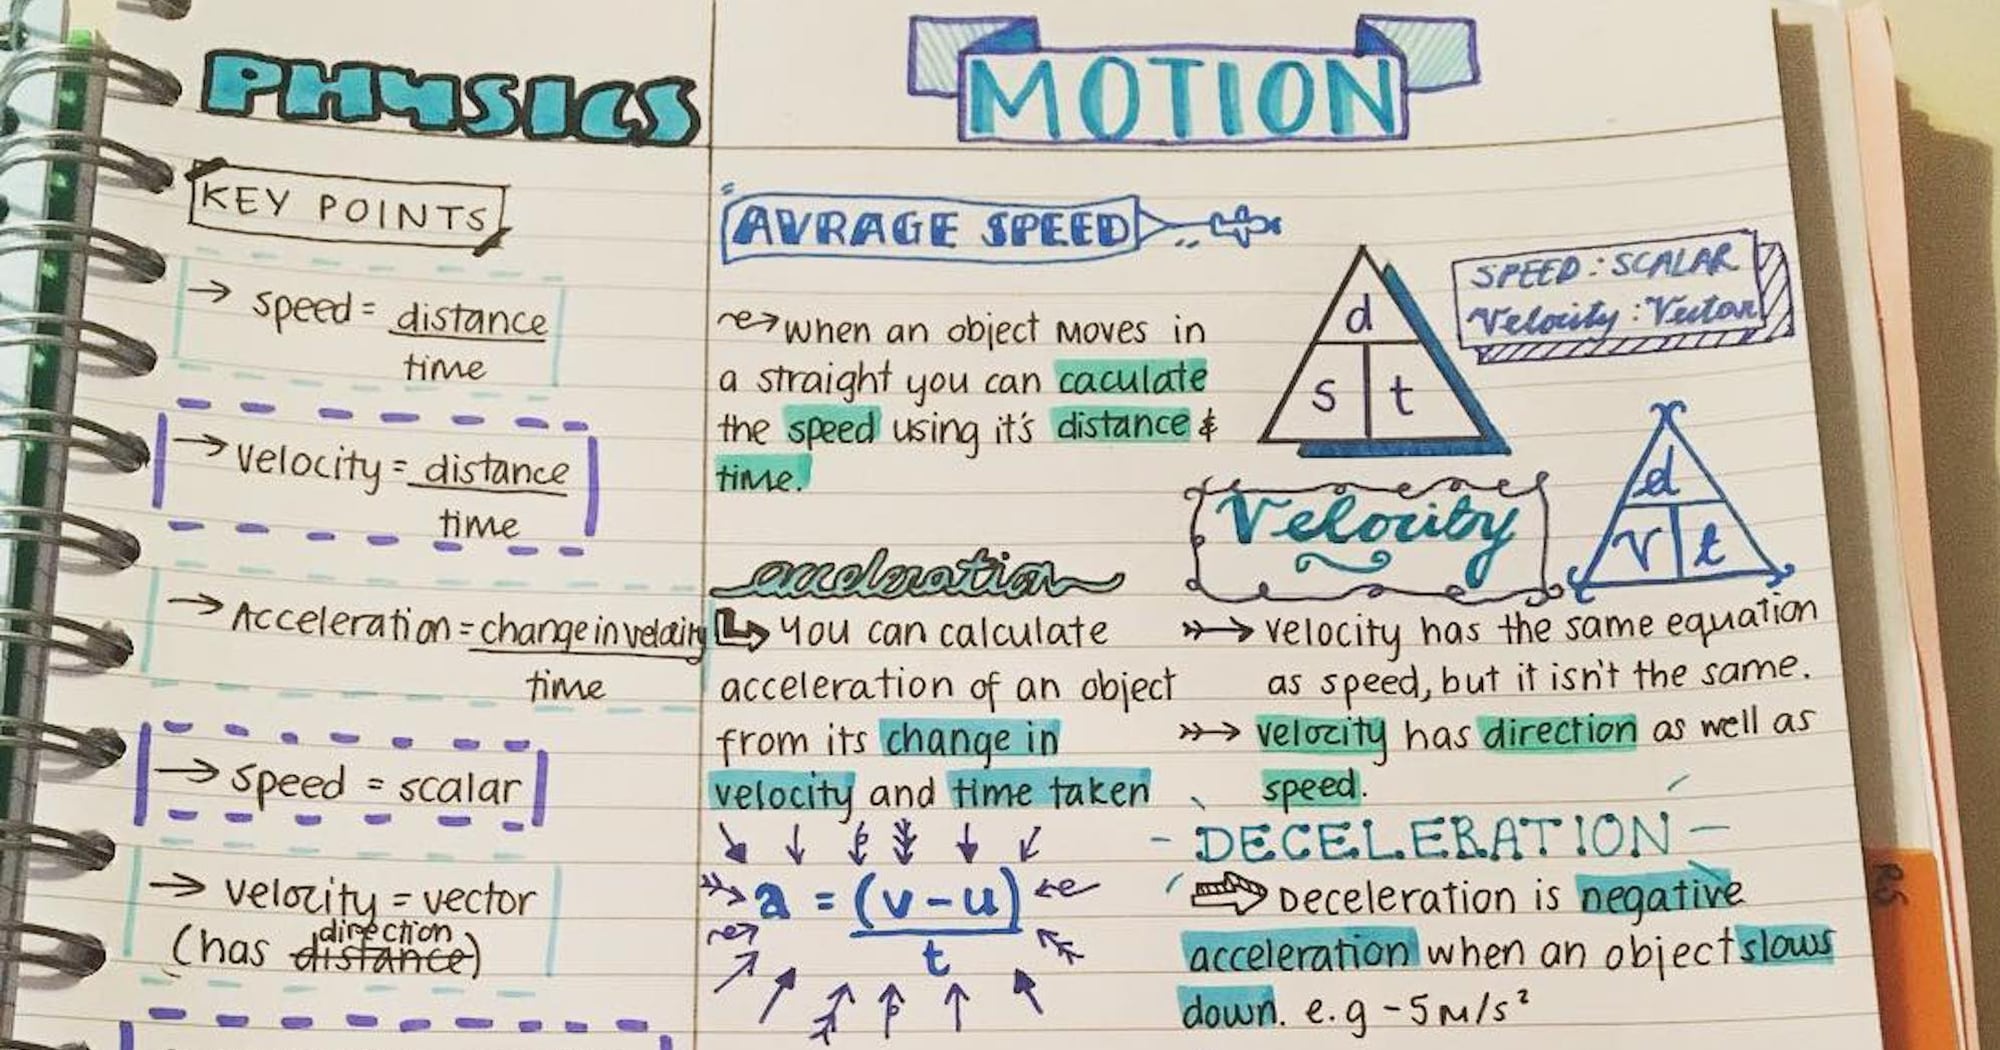 PHYSICS
KEY POINTS
→ speed = distance
time
→ velocity = distance
time
→ Acceleration = change in velocity
time
→ speed = scalar
→ velocity = vector
direction
(has distance)
MOTION
AVRAGE SPEED
when an object moves in
a straight you can caculate
the speed using it's distance &
time.
d
s t
SPEED : SCALAR
Velocity : Vector
acceleration
You can calculate
acceleration of an object
from its change in
velocity and time taken
a = (v - u)
t
Velocity
d
v t
velocity has the same equation
as speed, but it isn't the same.
velocity has direction as well as
speed.
- DECELERATION -
Deceleration is negative
acceleration when an object slows
down. e.g -5 m/s²